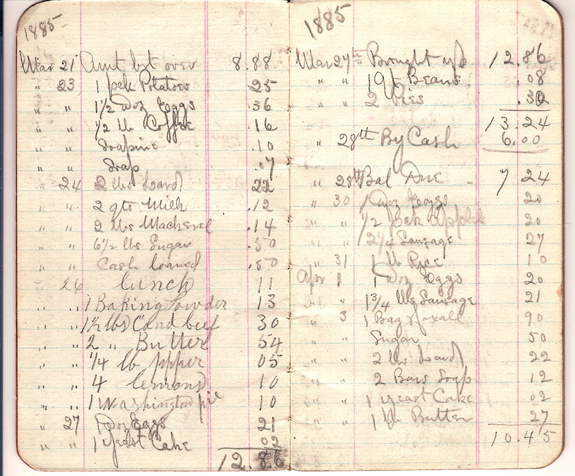 1885
Mar 21 Amt bot over 8.88
" 23 1 peck Potatoes .25
" " 1½ Doz Eggs .36
" " ½ lb Coffee .16
" " Soapine .10
" " Soap .07
" 24 2 lbs Lard 22
" " 2 qts Milk .12
" " 2 lbs Mackerel .14
" " 6½ lbs Sugar .50
" " Cash loaned .50
" 26 Lunch 11
" " 1 Baking Powder 13
" " lbs Corned beef 30
" " 2 " Butter 54
" " ¼ lb pepper 05
" " 4 lemons 10
" " 1 Washington pie 10
" 27 Doz Eggs 21
" " 1 yeast Cake 02
12.86
1885
Mar 27th Brought up 12.86
" " 1 Qt Beans .08
" " 2 Pies .30
13.24
" 28th By Cash 6.00
" 28th Bal Due 7 24
" 30 1 Doz Eggs 20
" " ½ peck apples 20
" " 2¼ Sausage 27
" 31 1 lb Rice 10
Apr 1 1 Doz Eggs 20
" " 1¾ lbs Sausage 21
" 3 1 Bag 90
" " Sugar 50
" " 2 lbs Lard 22
" " 2 Bars Soap 12
" " 1 yeast Cake 02
" " 1 lb Butter 27
10.45